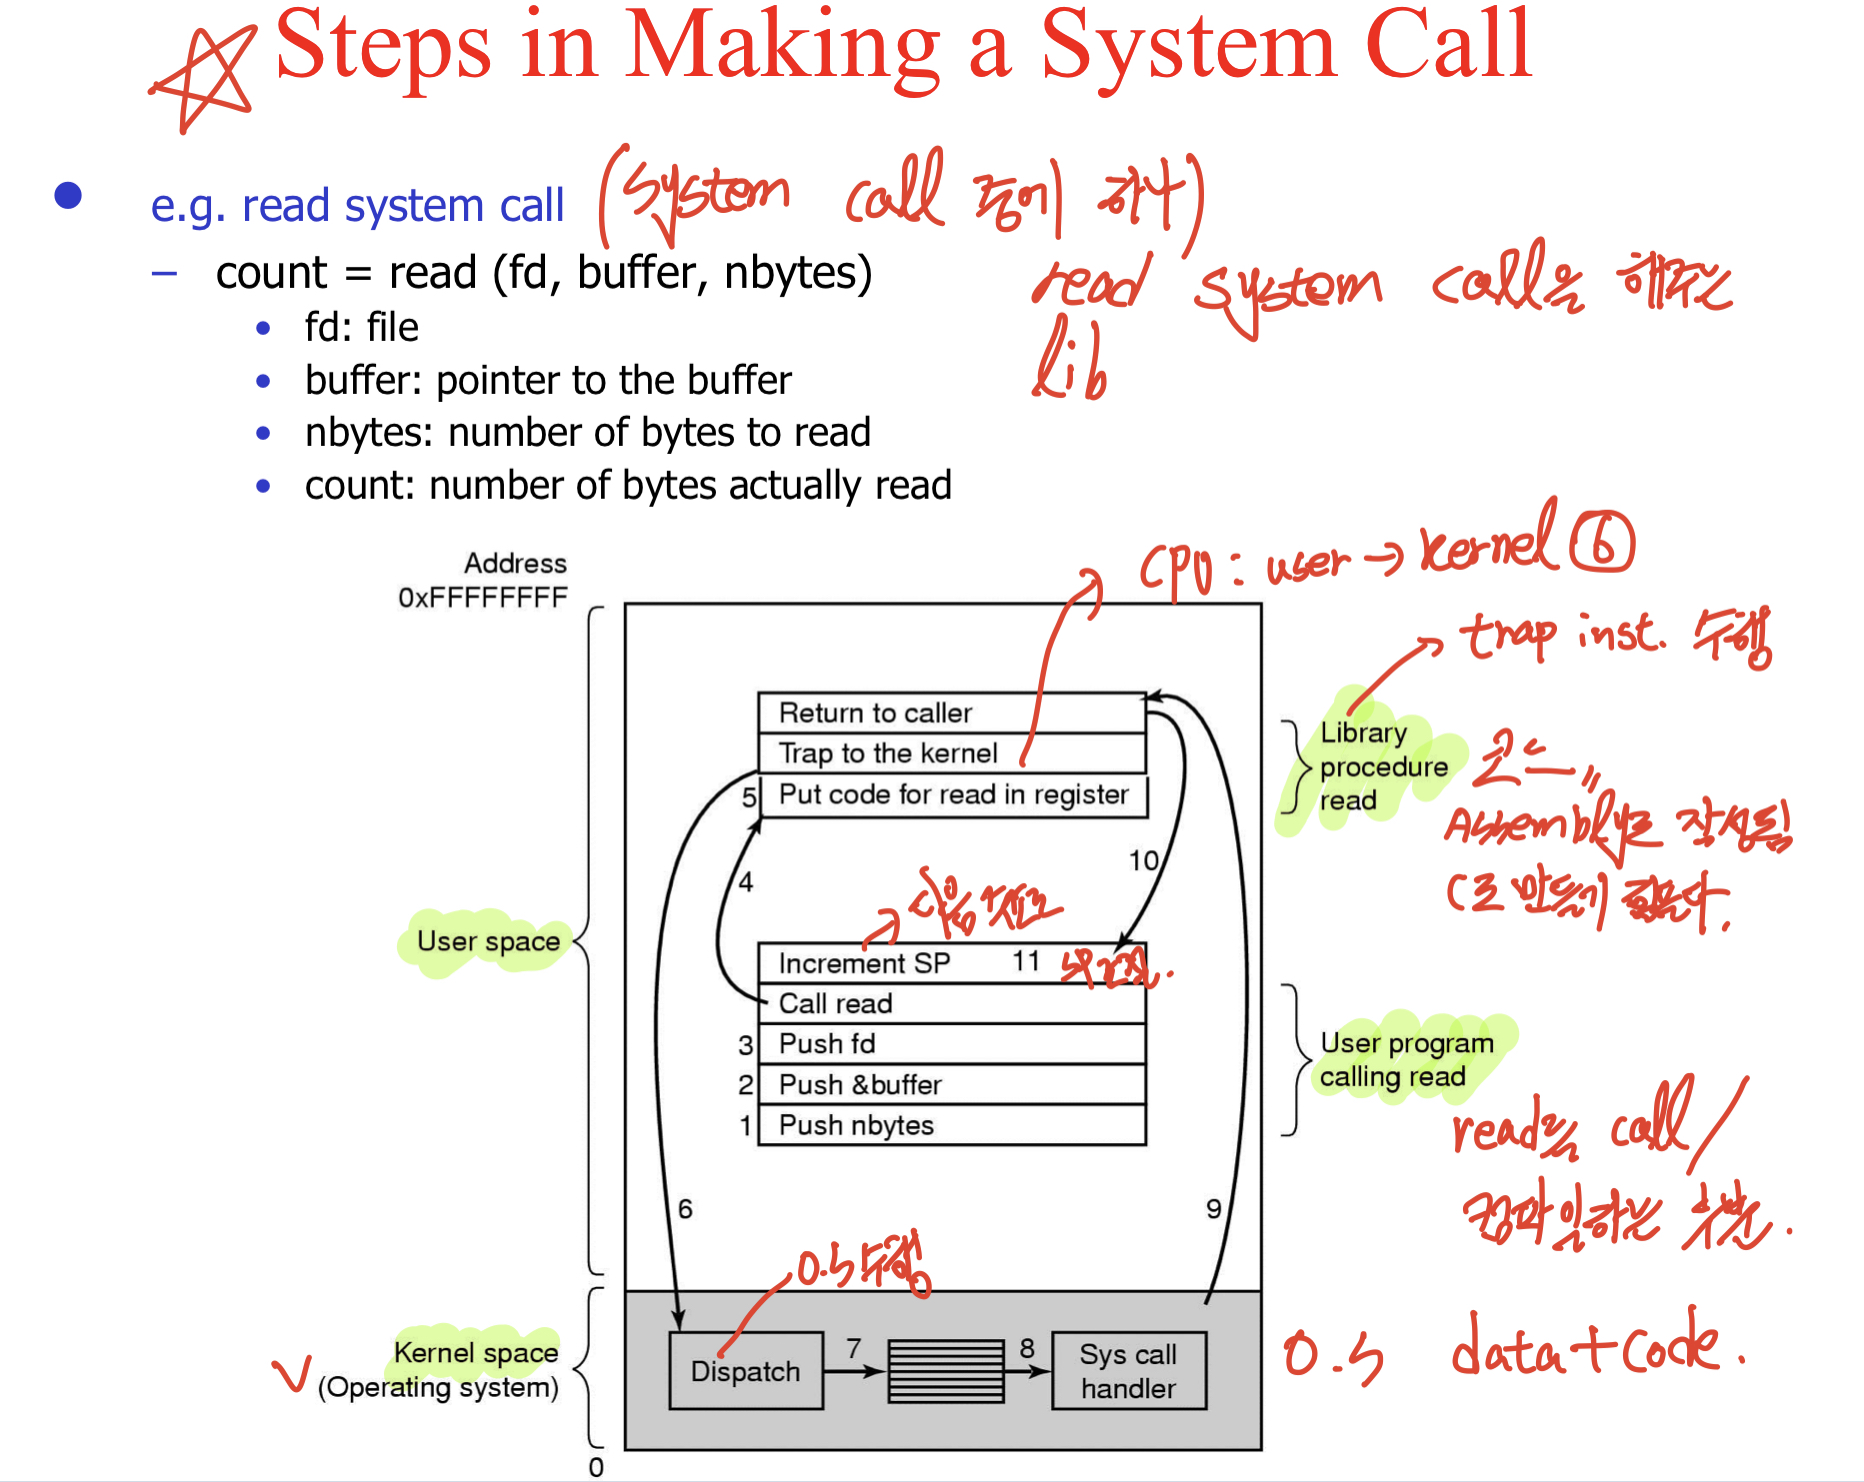 Steps in Making a System Call
e.g. read system call (system call 중에 하나)
count = read (fd, buffer, nbytes)
read system call을 해주는
lib
fd: file
buffer: pointer to the buffer
nbytes: number of bytes to read
count: number of bytes actually read
Address
0xFFFFFFFF
CPU : user → kernel ⑥
trap inst. 수행
Return to caller
Trap to the kernel
5 Put code for read in register
Library
procedure
read
코드는
Assembly로 작성됨
C로 만들기 힘들다.
4
10
다음 주소로
User space
Increment SP 11
Call read
3 Push fd
2 Push &buffer
1 Push nbytes
User program
calling read
read를 call /
컴파일하는 부분.
6
9
O.S 수행
Kernel space
(Operating system)
Dispatch
7
8
Sys call
handler
O.S data + code.
0